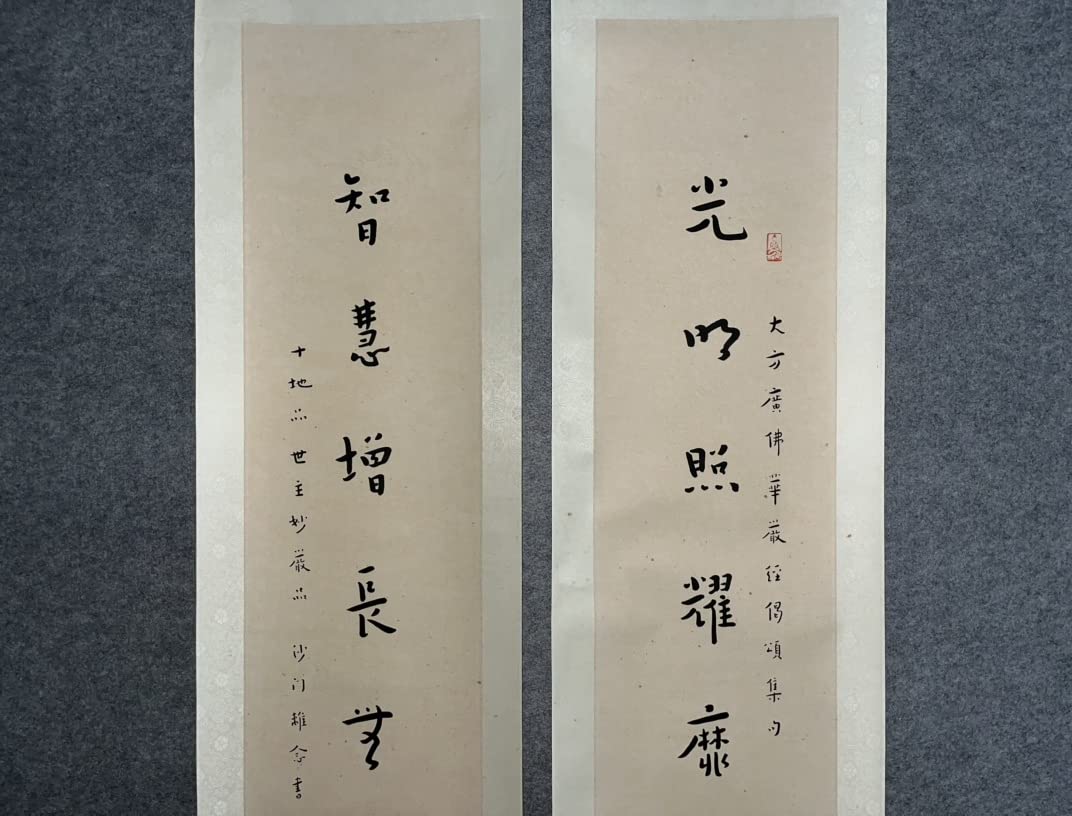 大方廣佛華嚴經偈頌集句
光明照耀靡
智慧增長無
十地品世主妙嚴品 沙门念書